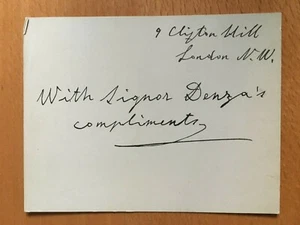 9 Clifton Hill
London N.W.
With Signor Denza's
compliments